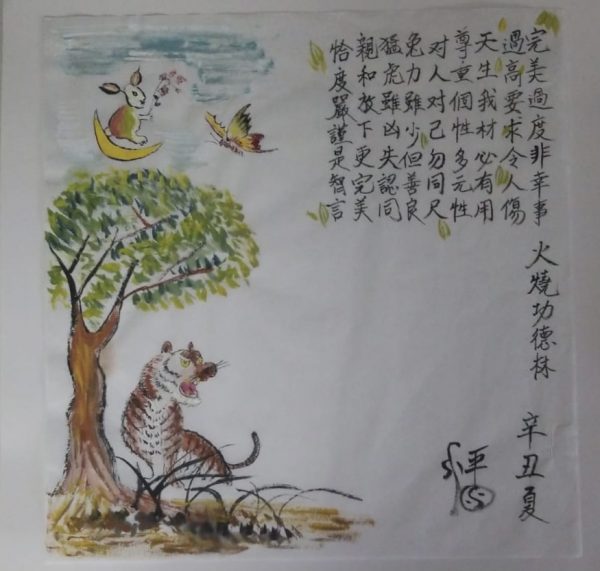 完美過度非幸事
過高要求令人傷
天生我材必有用
尊重個性多元性
对人对己勿同尺
兔力雖少但善良
猛虎雖凶失認同
親和放下更完美
恰度嚴謹是智言
火燒功德林
辛丑夏